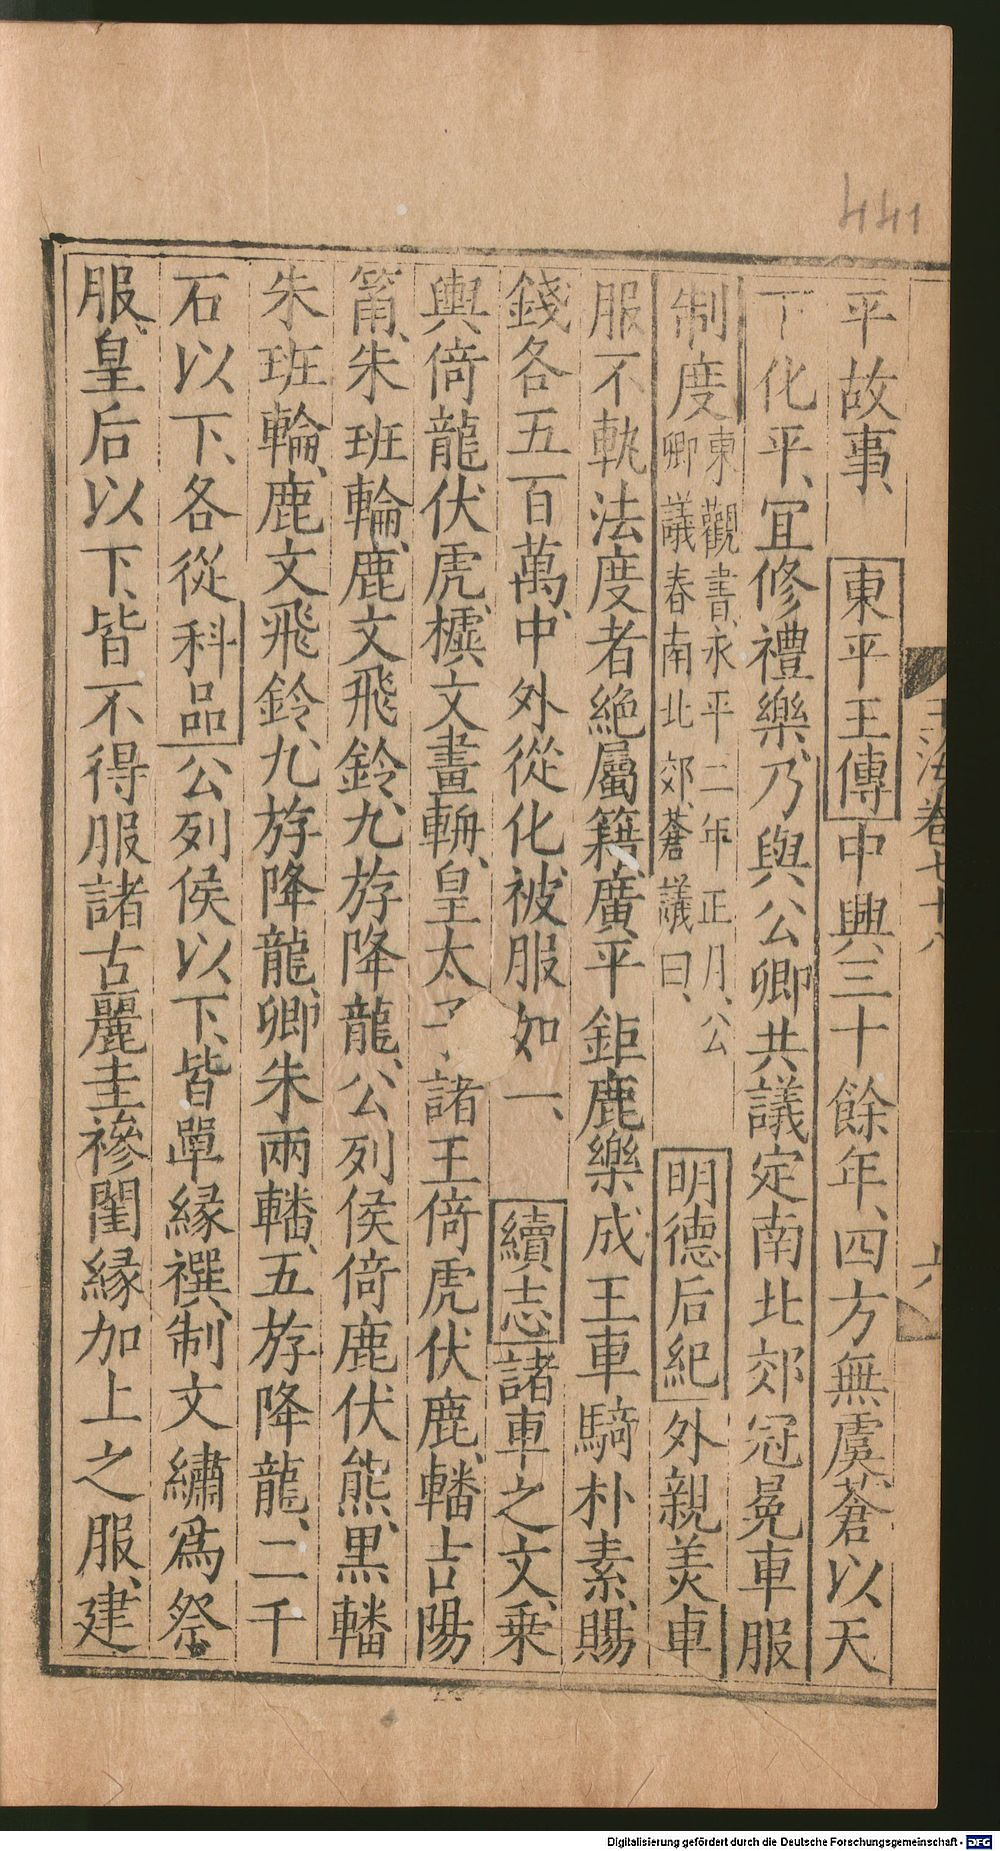 441
玉海卷七十八
六
平故事、東平王傳中興三十餘年、四方無虞、蒼以天
下化平、宜修禮樂、乃與公卿共議定南北郊冠冕車服
制度東觀書、永平二年正月、公卿議春南北郊、蒼議曰、明德后紀外親美車
服不軌法度者絶屬籍、廣平鉅鹿樂成王車騎朴素、賜
錢各五百萬、中外從化、被服如一、續志諸車之文、乗
輿倚龍伏虎、櫖文畫輈、皇太子、諸王倚虎伏鹿、轓吉陽
筩、朱班輪、鹿文飛鈴、九斿降龍、公列侯倚鹿伏熊、黒轓
朱班輪、鹿文飛鈴、九斿降龍、卿朱兩轓、五斿降龍、二千
石以下、各從科品公列侯以下、皆單縁襈、制文繡爲祭
服、皇后以下、皆不得服諸古麗圭襂閨縁加上之服、建
Digitalisierung gefördert durch die Deutsche Forschungsgemeinschaft - DFG